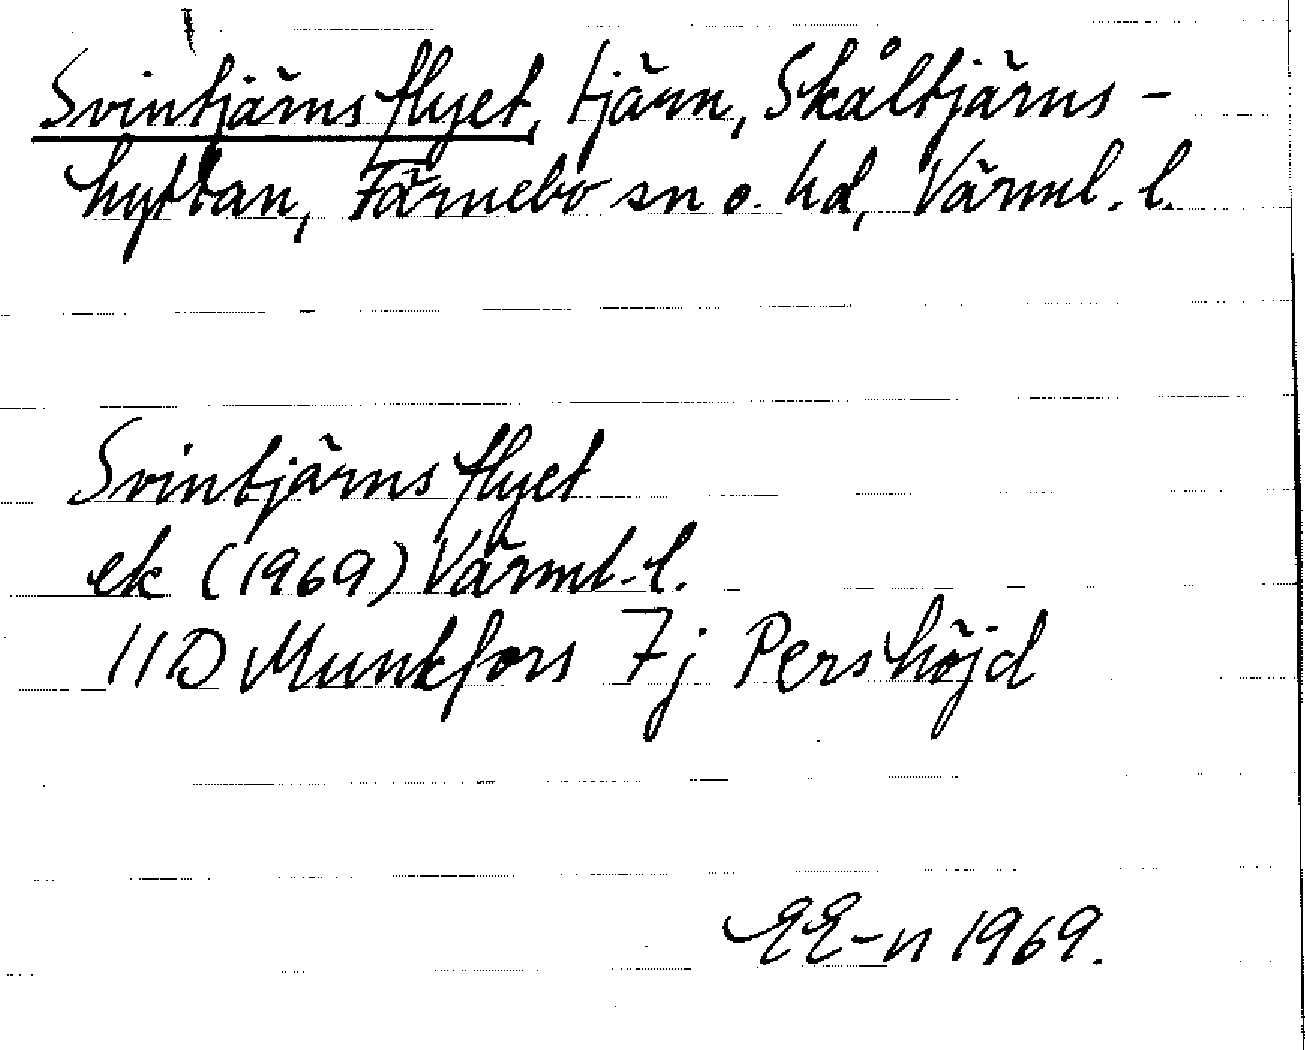 Svintjärnsflyet, tjärn, Skåltjärns-
hyttan, Färnebo sn o. hd, Värml. l.
Svintjärnsflyet
ek (1969) Värml. l.
11D Munkfors 7j Pershöjd
EE-n 1969.